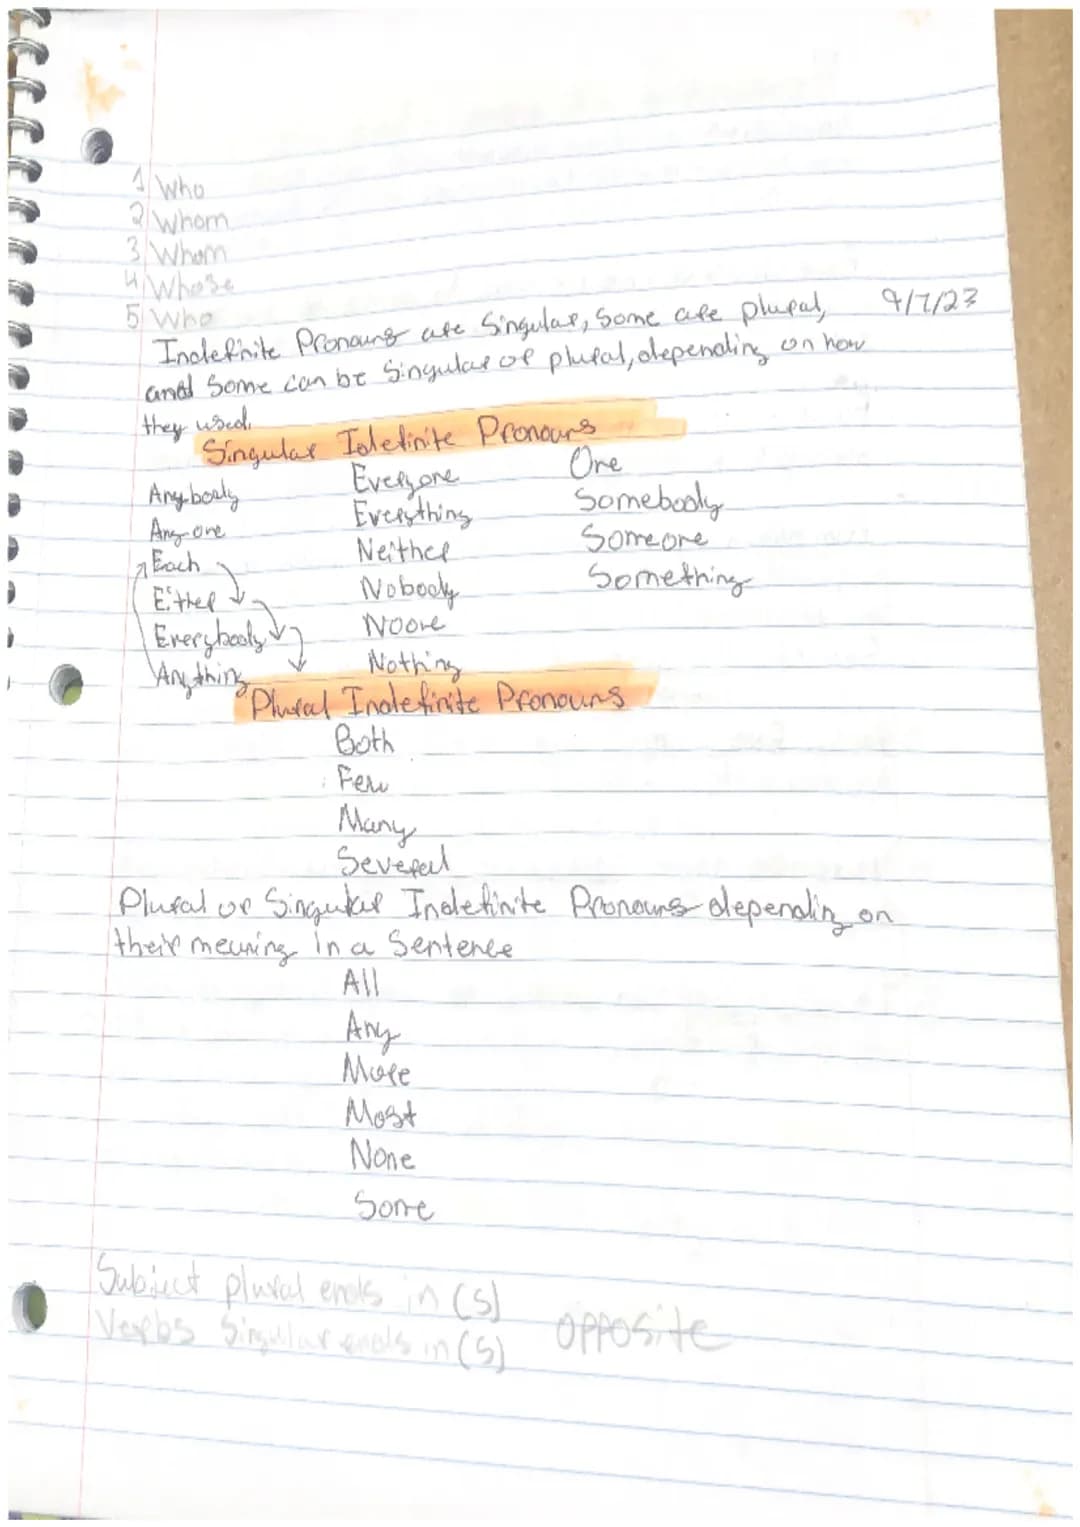 1 Who
2 Whom
3 Whom
4 Whose
5 Who
9/7/23
Indefinite Pronouns are Singular, Some are plural,
and Some can be Singular or plural, depending on how
they used.
Singular Idefinite Pronouns
Anybody Everyone One
Anyone Everything Somebody
Each Neither Someone
Either Nobody Something
Everybody Noone
Anything Nothing
Plural Indefinite Pronouns
Both
Few
Many
Several
Plural or Singular Indefinite Pronouns depending on
their meaning in a Sentence
All
Any
More
Most
None
Some
Subject plural ends in (s)
Verbs Singular ends in (s) opposite